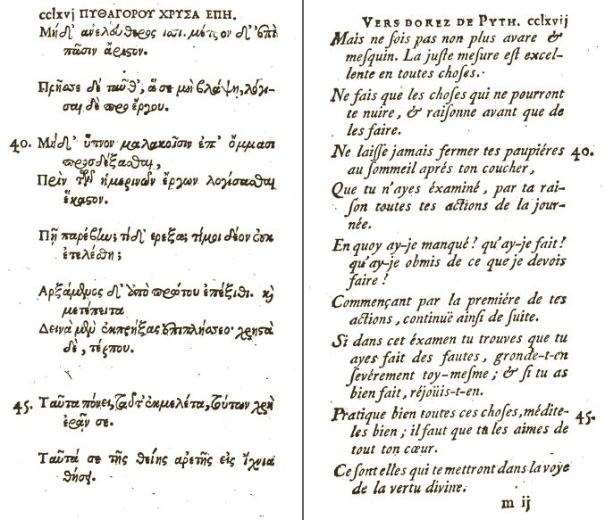 cclxvj ΠΥΘΑΓΟΡΟΥ ΧΡΥΣΑ ΕΠΗ.
Μηδ' ἀνελεύθερος ἴσθι. μέτρον δ' ἐπὶ
πᾶσιν ἄριστον.
Πρῆσσε δὲ ταῦθ', ἅ σε μὴ βλάψῃ, λόγι-
σαι δὲ πρὸ ἔργου.
40. Μηδ' ὕπνον μαλακοῖσιν ἐπ' ὄμμασι
προσδέξασθαι,
Πρὶν τῶν ἡμερινῶν ἔργων λογίσασθαι
ἕκαστον.
Πῆ παρέβην; τί δ' ἔρεξα; τί μοι δέον οὐκ
ἐτελέσθη;
Ἀρξάμενος δ' ἀπὸ πρώτου ἐπέξιθι. καὶ
μετέπειτα
Δεινὰ μὲν ἐκπρήξας ἐπιπλήσσεο· χρηστὰ
δὲ, τέρπου.
45. Ταῦτα πόνει, ταῦτ' ἐκμελέτα, τούτων χρὴ
ἐρᾶν σε.
Ταῦτά σε τῆς θείης ἀρετῆς εἰς ἴχνια
θήσει.
VERS DOREZ DE PYTH. cclxvij
Mais ne ſois pas non plus avare &
meſquin. La juſte meſure eſt excel-
lente en toutes choſes.
Ne fais que les choſes qui ne pourront
te nuire, & raiſonne avant que de
les faire.
Ne laiſſe jamais fermer tes paupiéres 40.
au ſommeil aprés ton coucher,
Que tu n'ayes éxaminé, par ta rai-
ſon toutes tes actions de la jour-
née.
En quoy ay-je manqué ? qu'ay-je fait ?
qu'ay-je obmis de ce que je devois
faire !
Commençant par la premiére de tes
actions, continuë ainſi de ſuite.
Si dans cet éxamen tu trouves que tu
ayes fait des fautes, gronde-t-en
ſevérement toy-meſme ; & ſi tu as
bien fait, réjoüis-t-en.
Pratique bien toutes ces choſes, médite- 45.
les bien ; il faut que tu les aimes de
tout ton cœur.
Ce ſont elles qui te mettront dans la voye
de la vertu divine.
m ij